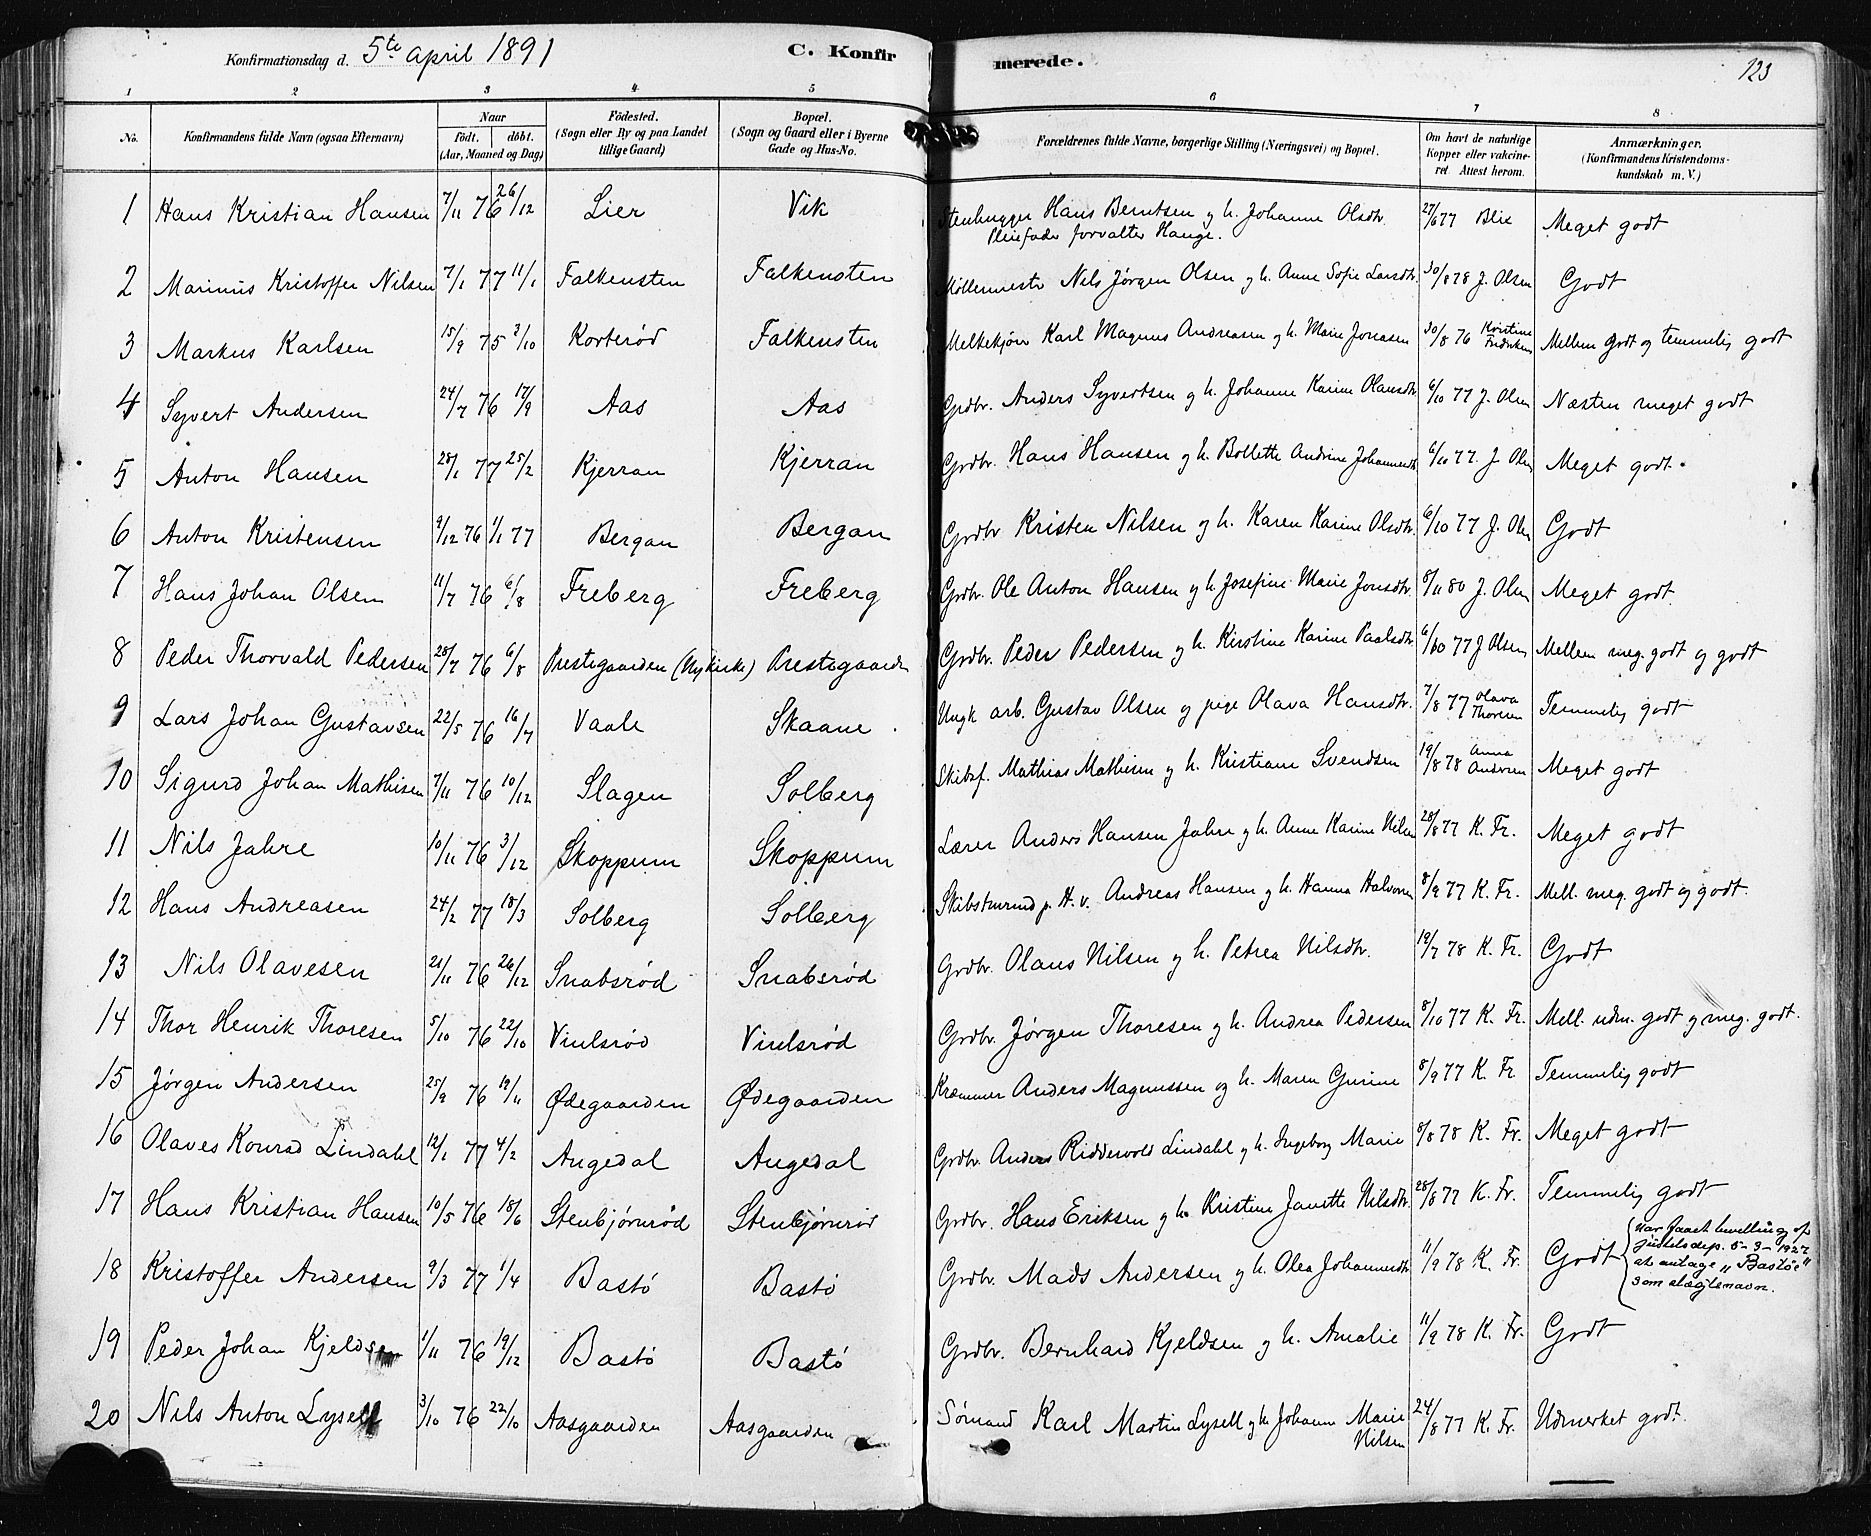 Konfirmationsdag d. 5te April 1891 C. Konfirmerede. 123
1 2 3 4 5 6 7 8
No. Konfirmandens fulde Navn (ogsaa Efternavn) Naar født. døbt. (Aar, Maaned og Dag) Fødested. (Sogn eller By og paa Landet tillige Gaard) Bopæl. (Sogn og Gaard eller i Byerne Gade og Hus-No. Forældrenes fulde Navne, borgerlige Stilling (Næringsvei) og Bopæl. Om havt de naturlige Kopper eller vakcineret Attest herom. Anmærkninger. (Konfirmandens Kristendomskundskab m. V.)
1 Hans Kristian Hansen 7/11 76 26/12 Lier Vik Stenhugger Hans Berntsen og h. Johanne Olsdtr. 27/6 77 Blix Meget godt
Pleiefader forvalter Hauge.
2 Marinus Kristoffer Nilsen 7/1 77 11/1 Falkensten Falkensten Møllermester Nils Jørgen Olsen og h. Anne Sofie Larsdtr. 30/8 78 J. Olsen Godt
3 Markus Karlsen 15/9 75 3/10 Korterød Falkensten Melkekjører Karl Magnus Andreasen og h. Marie Jonasen 30/8 76 Kristine Fredriksen Mellem godt og temmelig godt
4 Syvert Andersen 24/7 76 17/9 Aas Aas Grdbr. Anders Syvertsen og h. Johanne Karine Olausdtr 6/10 77 J. Olsen Næsten meget godt
5 Anton Hansen 28/1 77 25/2 Kjerran Kjerran Grdbr. Hans Hansen og h. Bollette Andrine Johannesdtr 6/10 77. J. Olsen Meget godt.
6 Anton Kristensen 9/12 76 1/1 77 Bergan Bergan Grdbr Kristen Nilsen og h. Karen Karine Olsdtr. 6/10 77 J. Olsen Godt
7 Hans Johan Olsen 11/7 76 6/8 Freberg Freberg Grdbr. Ole Anton Hansen og h. Josefine Marie Jonsdtr. 8/11 80 J. Olsen Meget godt.
8 Peder Thorvald Pedersen 28/7 76 6/8 Prestegaarden (Nykirke) Prestegaarden Grdbr. Peder Pedersen og h. Kirstine Karine Paalsdtr 6/10 77 J Olsen Mellem meg. godt og godt
9 Lars Johan Gustavsen 22/5 76 16/7 Vaale Skaane. Ungk arb. Gustav Olsen og pige Olava Hansdtr. 7/8 77 Olava Thoresen Temmelig godt
10 Sigurd Johan Mathisen 7/11 76 10/12 Slagen Solberg Skibsf. Mathias Mathisen og h. Kristiane Svendsen 19/8 78 Anna Andersen Meget godt
11 Nils Jahre 10/11 76 3/12 Skoppum Skoppum Lærer Anders Hansen Jahre og h. Anne Karine Nilsen 28/8 77 K. Fr. Meget godt
12 Hans Andreasen 24/2 77 18/3 Solberg Solberg Skibstmrmd p. H. v. Andreas Hansen og h. Hanna Halvorsen 8/9 77 K. Fr. Mell. meg. godt og godt.
13 Nils Olavesen 21/11 76 26/12 Snabsrød Snabsrød Grdbr. Olaus Nilsen og h. Petrea Nilsdtr. 19/7 78 K. Fr. Godt
14 Thor Henrik Thoresen 5/10 76 22/10 Viulsrød Viulsrød Grdbr. Jørgen Thoresen og h. Andrea Pedersen 8/10 77 K. Fr. Mell. udm. godt og meg. godt.
15 Jørgen Andersen 25/9 76 19/11 Ødegaarden Ødegaarden Kræmmer Anders Magnussen og h. Maren Gurine 8/9 77 K. Fr Temmelig godt
16 Olaves Konrad Lindahl 12/1 77 4/2 Augedal Augedal Grdbr. Anders Riddervold Lindahl og h. Ingeborg Marie 8/8 78 K. Fr. Meget godt
17 Hans Kristian Hansen 10/5 76 18/6 Stenbjørnrød Stenbjørnrød Grdbr. Hans Eriksen og h. Kristine Janette Nilsdtr 28/8 77 K. Fr. Temmelig godt
18 Kristoffer Andersen 9/3 77 1/4 Bastø Bastø Grdbr. Mads Andersen og h. Olea Johannesdtr 11/9 78 K. Fr. Godt
Har faaet bevilling af
Justitsdep. 5-3-1927
at antage „Bastøe"
som slægtsnavn.
19 Peder Johan Kjeldsen 1/11 76 19/12 Bastø Bastø Grdbr. Bernhard Kjeldsen og h. Amalie 11/9 78 K. Fr. Godt
20 Nils Anton Lysell 3/10 76 22/10 Aasgaarden Aasgaarden Sømand Karl Martin Lysell og h. Johanne Marie Nilsen 24/8 77 K. Fr. Udmerket godt.